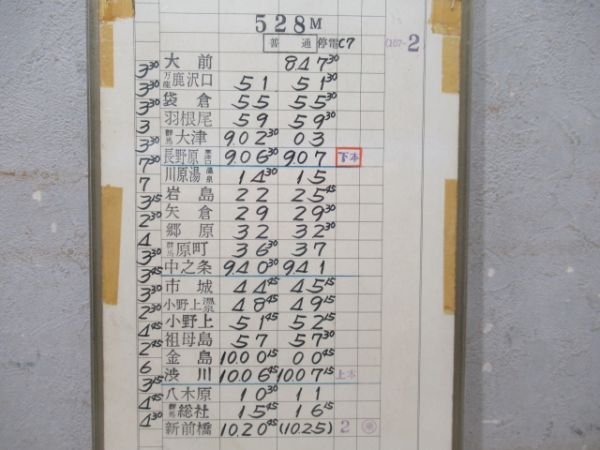 528M
普通 停電C7 (107- 2
大前 847 30
3 30 万座 鹿沢口 51 51 30
3 30 袋倉 55 55 30
3 30 羽根尾 59 59 30
3 群馬 大津 9.02 30 03
3 30 長野原 草津口 9.06 30 907 下本
7 30 川原湯 温泉 14 30 15
7 岩島 22 25 45
3 15 矢倉 29 29 30
2 30 郷原 32 32 30
4 群馬 原町 36 30 37
3 30 中之条 940 30 941
3 45 市城 44 45 45 15
3 30 小野上 温泉 48 45 49 15
2 30 小野上 51 45 52 15
4 45 祖母島 57 57 30
2 45 金島 10.00 15 00 45
6 渋川 10.06 45 10.07 15 上本
3 15 八木原 10 30 11
4 45 群馬 総社 15 45 16 15
4 30 新前橋 10.20 45 (10.25) 2